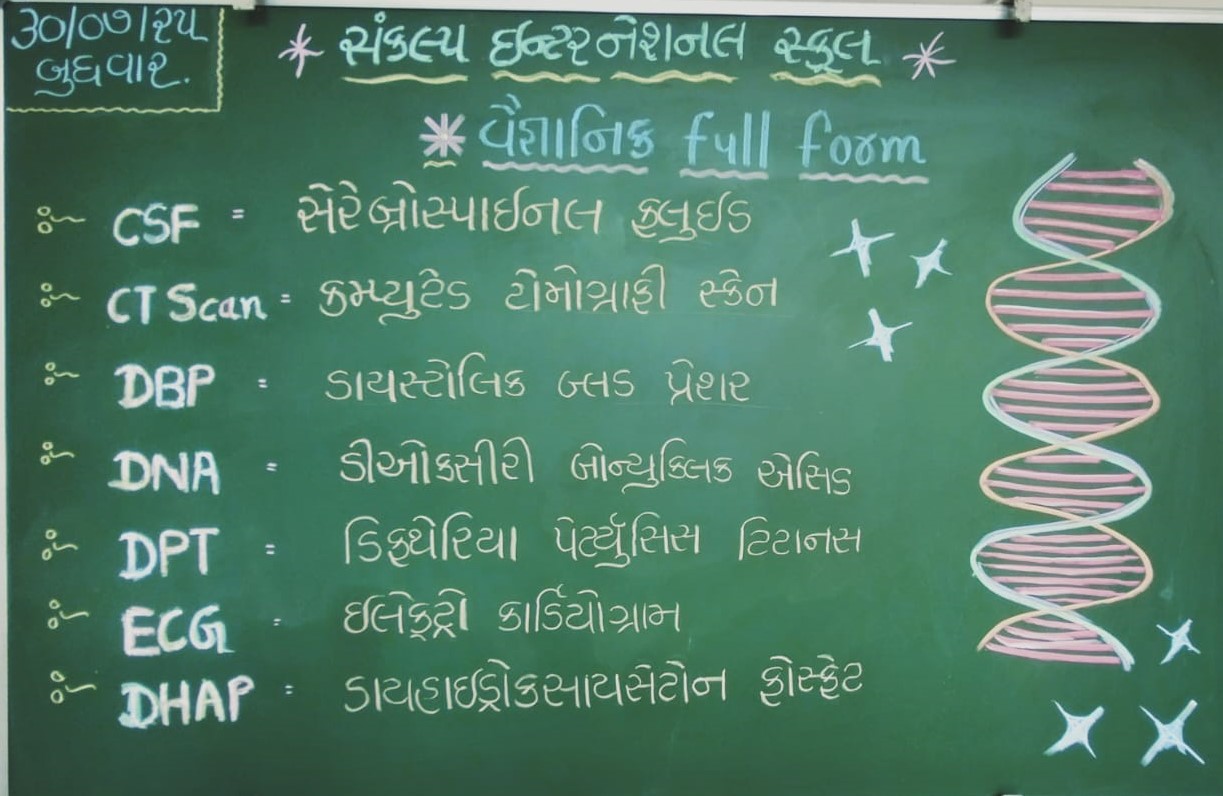 ૩૦/૦૭/૨૫
બુધવાર.
* સંકલ્પ ઇન્ટરનેશનલ સ્કુલ *
* વૈજ્ઞાનિક full form
CSF = સેરેબ્રોસ્પાઈનલ ફ્લુઈડ
CT Scan = કમ્પ્યુટેડ ટોમોગ્રાફી સ્કેન
DBP = ડાયસ્ટોલિક બ્લડ પ્રેશર
DNA = ડીઓક્સીરી બોન્યુક્લિક એસિડ
DPT = ડિફ્થેરિયા પેર્ટ્યુસિસ ટિટાનસ
ECG = ઈલેક્ટ્રો કાર્ડિયોગ્રામ
DHAP = ડાયહાઇડ્રોકસાયસેટોન ફોસ્ફેટ